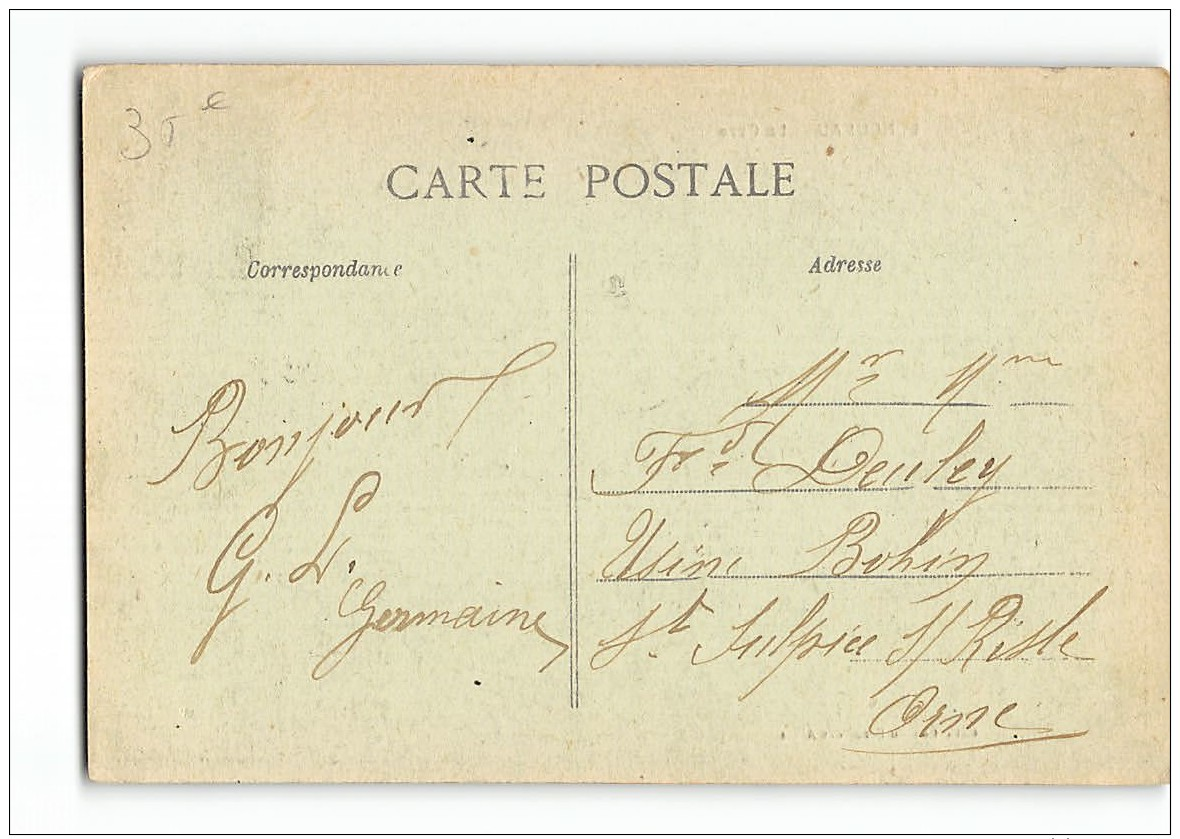 35 €
CARTE POSTALE
Correspondance
Adresse
Bonjour
G. L.
Germaine
Mr Mme
Fr.d Deuley
Usine Bohin
St Sulpice s/ Risle
Orne